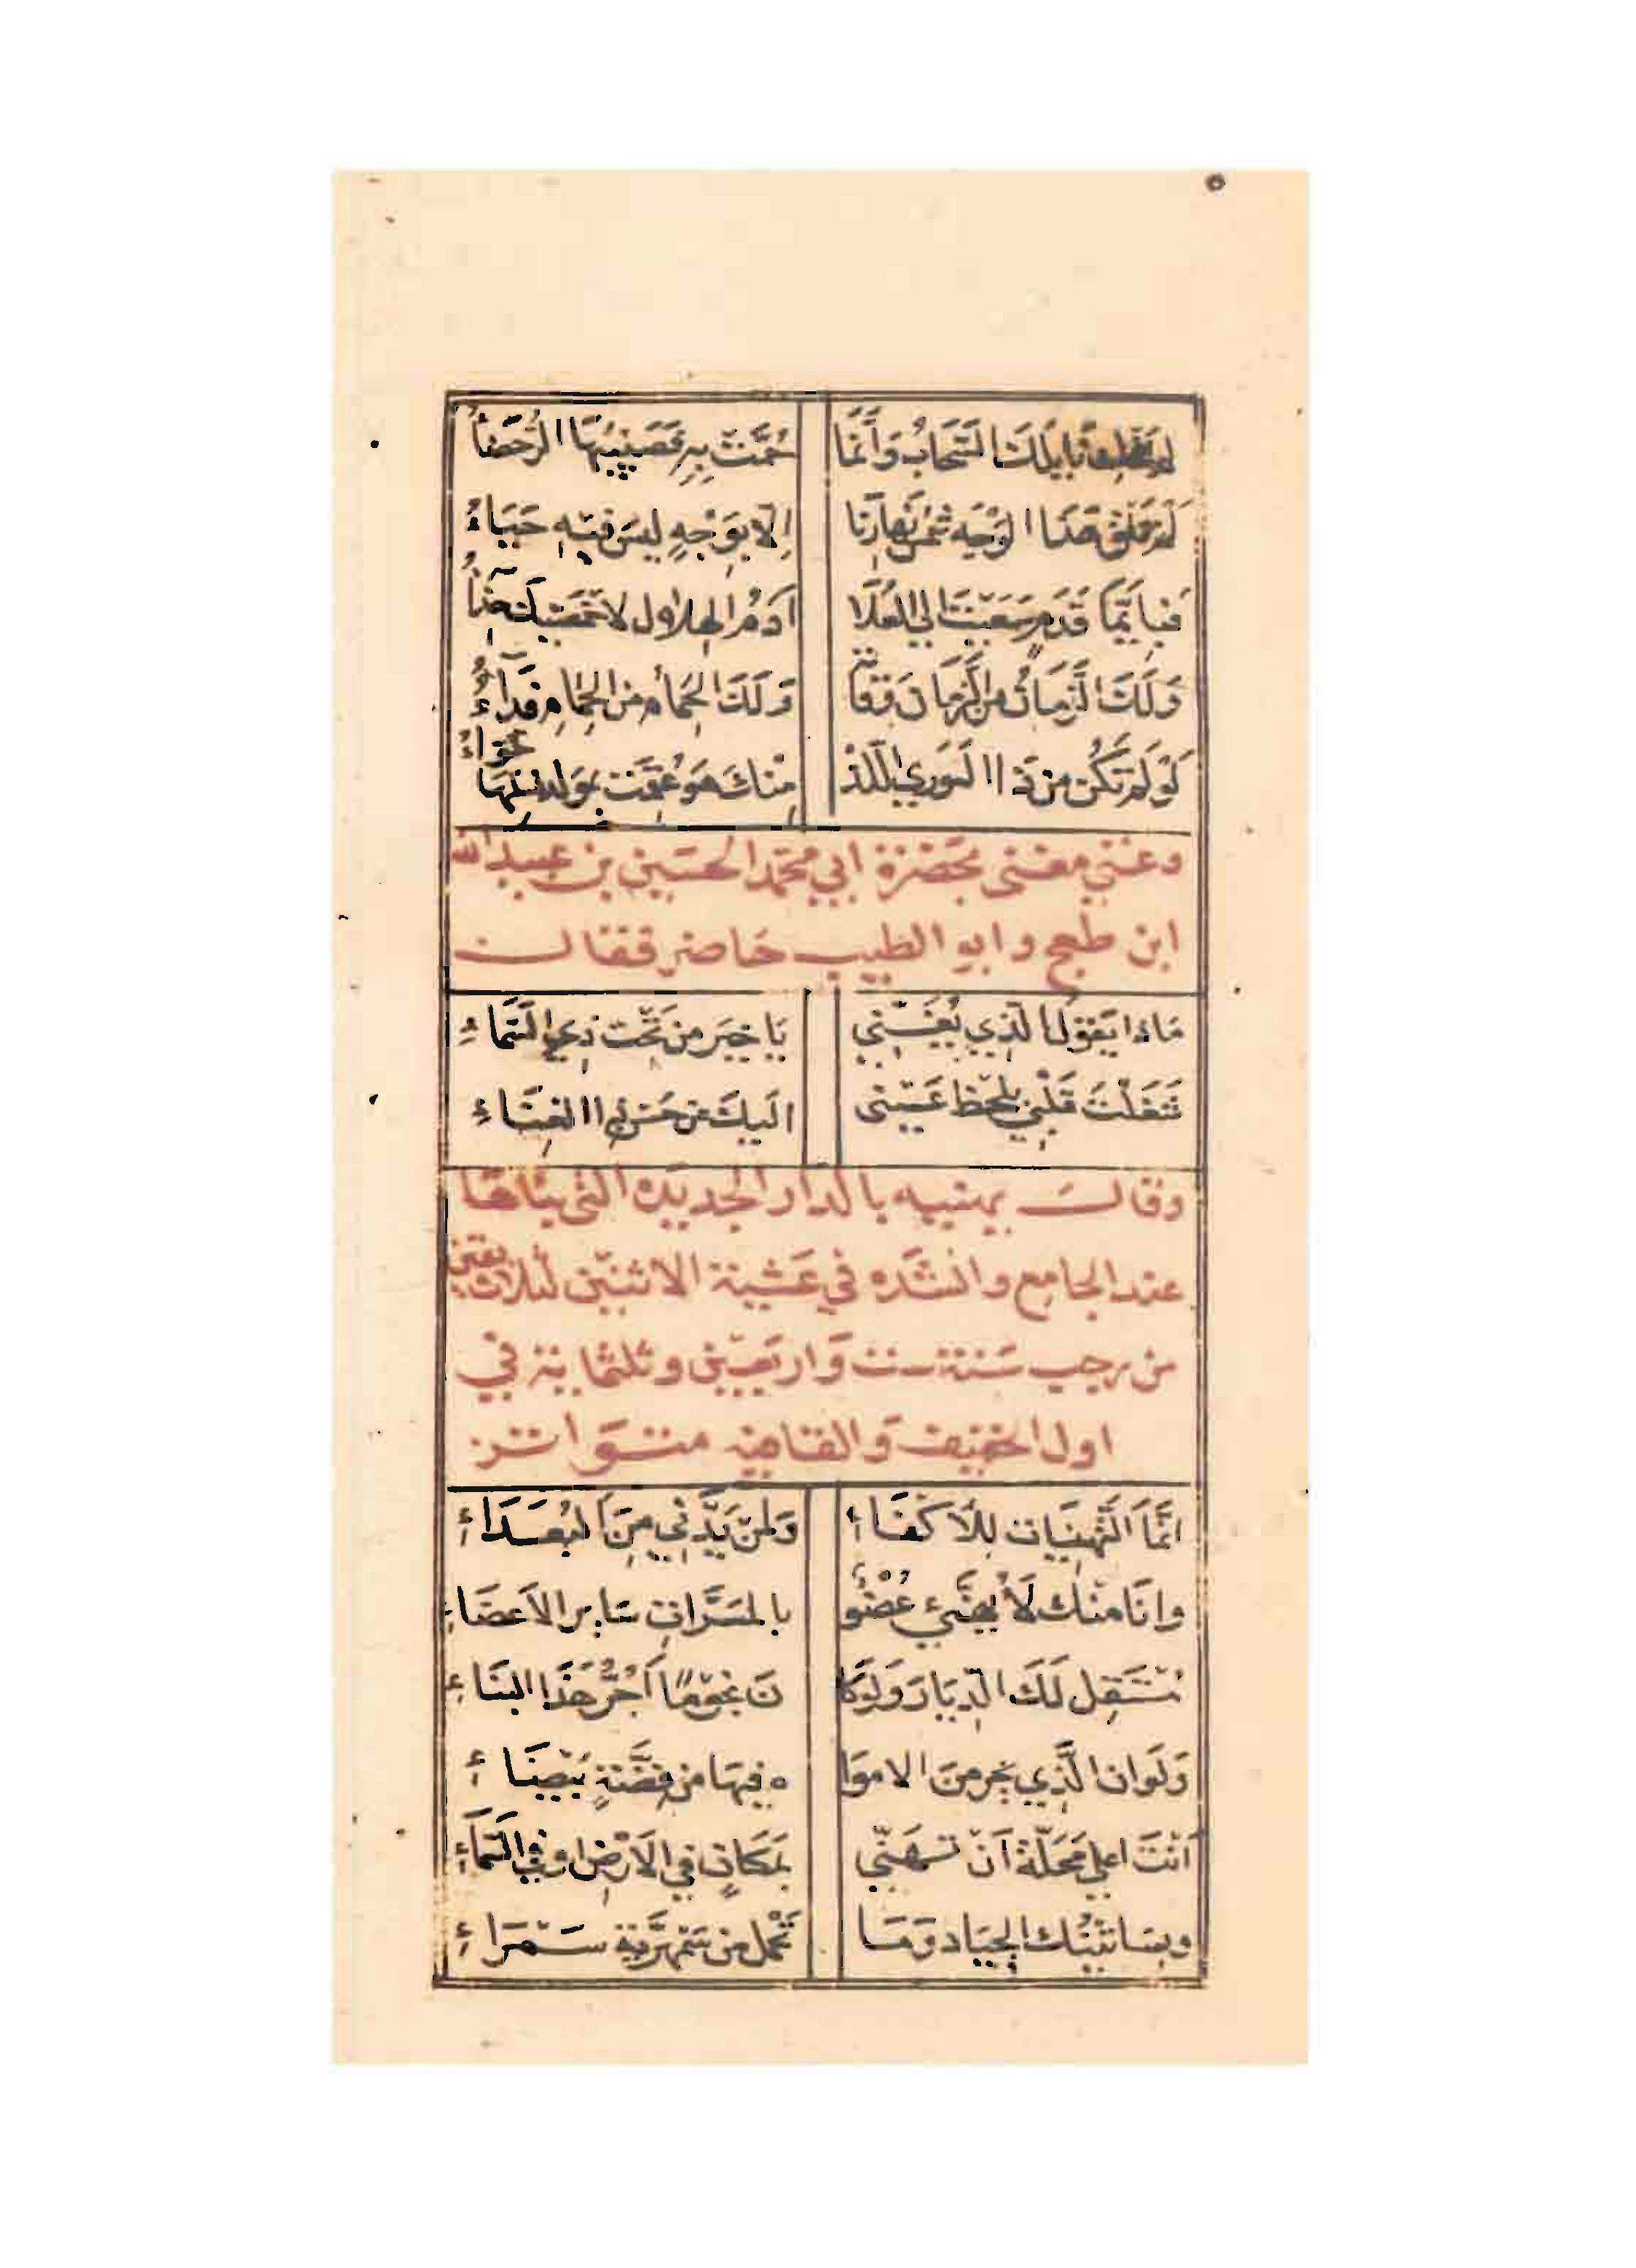 لم تحك نايلك السحاب وانما حُمّت به فصبيبها الرحضاءُ
لم تلق هذا الوجه شمس نهارنا الّا بوجهٍ ليس فيه حياءُ
فبايّما قدم سعيت الي العلا ادم الهلال لاخمصيك حذآءُ
ولك الزمان من الزمان وقاية ولك الحمام من الحمام فدآءُ
لو لم تكن من ذا الوري اللّذْ منك هو عقمت بمولد نسلها حوّاءُ
وغنّي مغنى بحضرة ابي محمّد الحسين بن عبيد الله
ابن طغج وابو الطيب حاضر فقال
ماذا يقول الّذي يُغنّي يا خير من تحت ذي السّماءِ
شغلت قلبي بلحظ عيني اليك عن حسن ذا الغناءِ
وقال يهنيه بالدار الجديده التى بناها
عند الجامع وانشده في عشية الاثنين لثلاث بقين
من رجب سنة ست واربعين وثلثماية في
اول الخفيف والقافيه متواتر
انّما التّهنيات للاكفاءِ ولمن يدّني من البعداءِ
وانا منك لا يهنّيء عُضْوٌ بالمسرّاتِ ساير الاعضاءِ
مستقِل لك الدّيار ولو كا ن نجومًا آجرّ هذا البناءِ
ولو ان الّذي يخر من الاموا ه فيها من فضّةٍ بيضاءِ
انت اعلي محلّة ان تهنّي بمكانٍ في الارض او في السّمآءِ
وبساتينك الجياد وما تحمل من سمهريّة سمراءِ